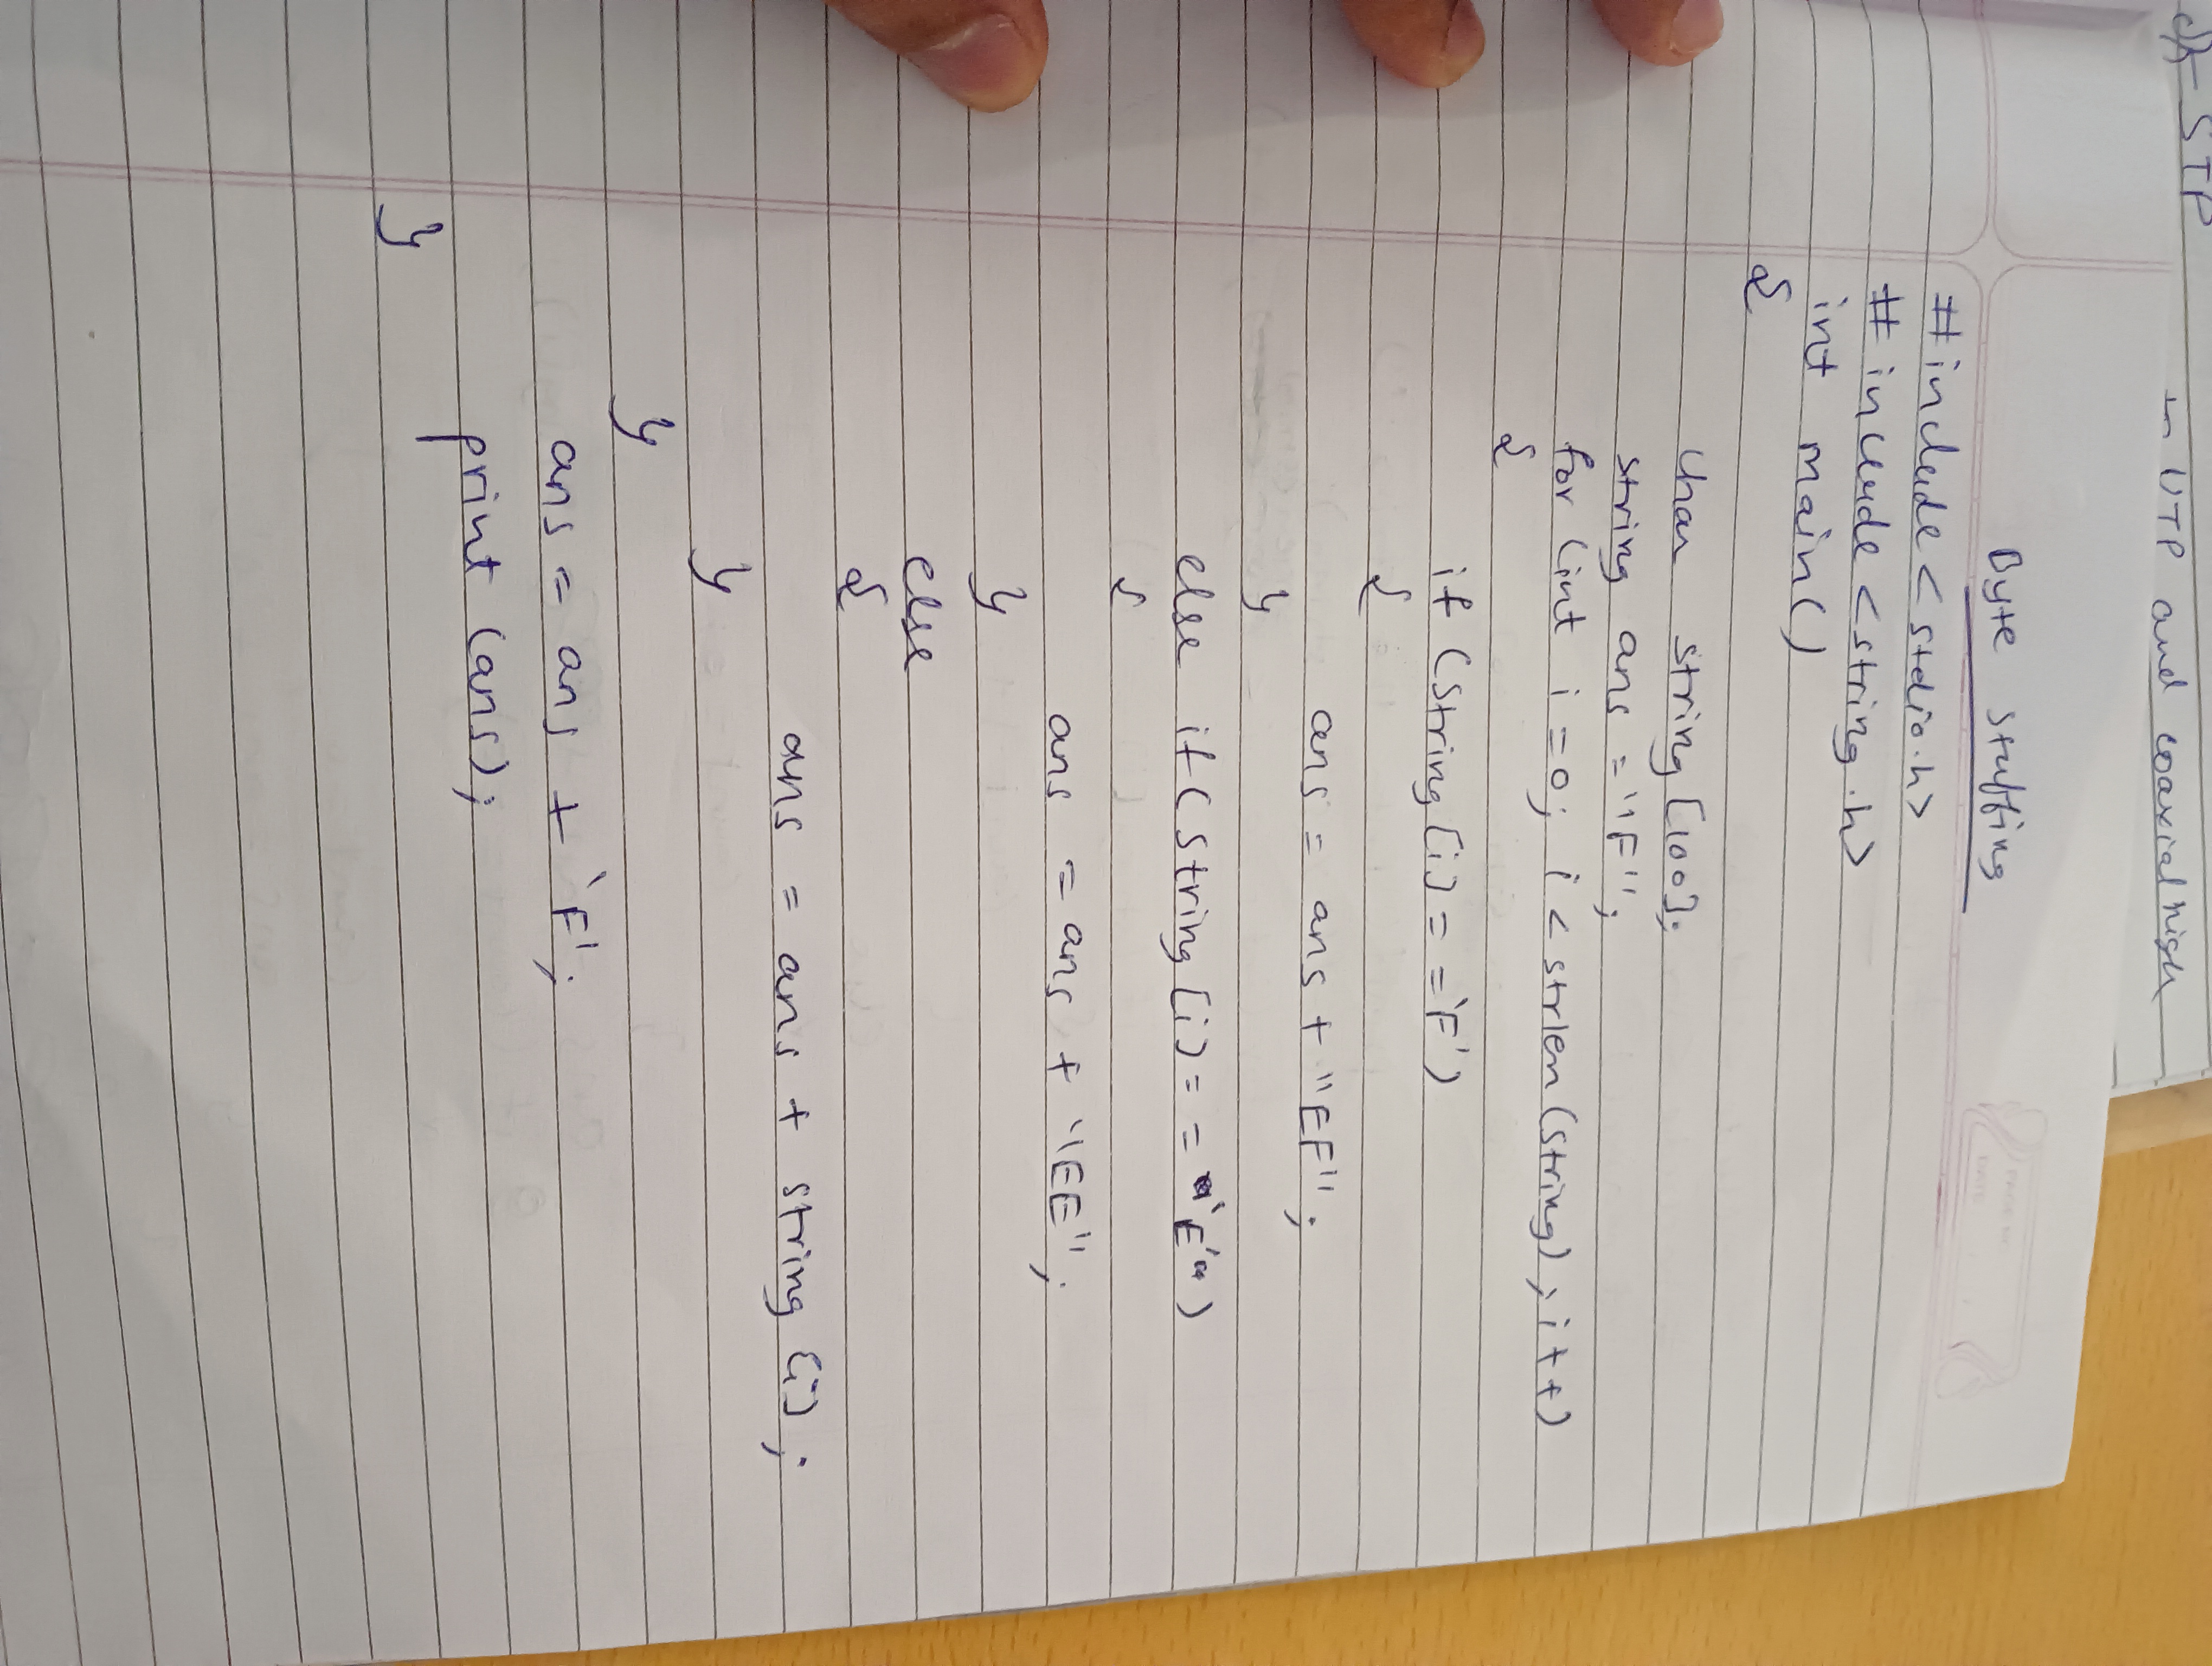 STP
UTP and coaxial high
PAGE NO.
DATE
Byte stuffing
#include <stdio.h>
#include <string.h>
int main()
{
char string [100];
string ans = "F";
for (int i=0; i < strlen (string); i++)
{
if (string [i] == 'F')
{
ans = ans + "EF";
}
else if (string [i] == 'E')
{
ans = ans + "EE";
}
else
{
ans = ans + string [i];
}
}
ans = ans + 'F';
print (ans);
}